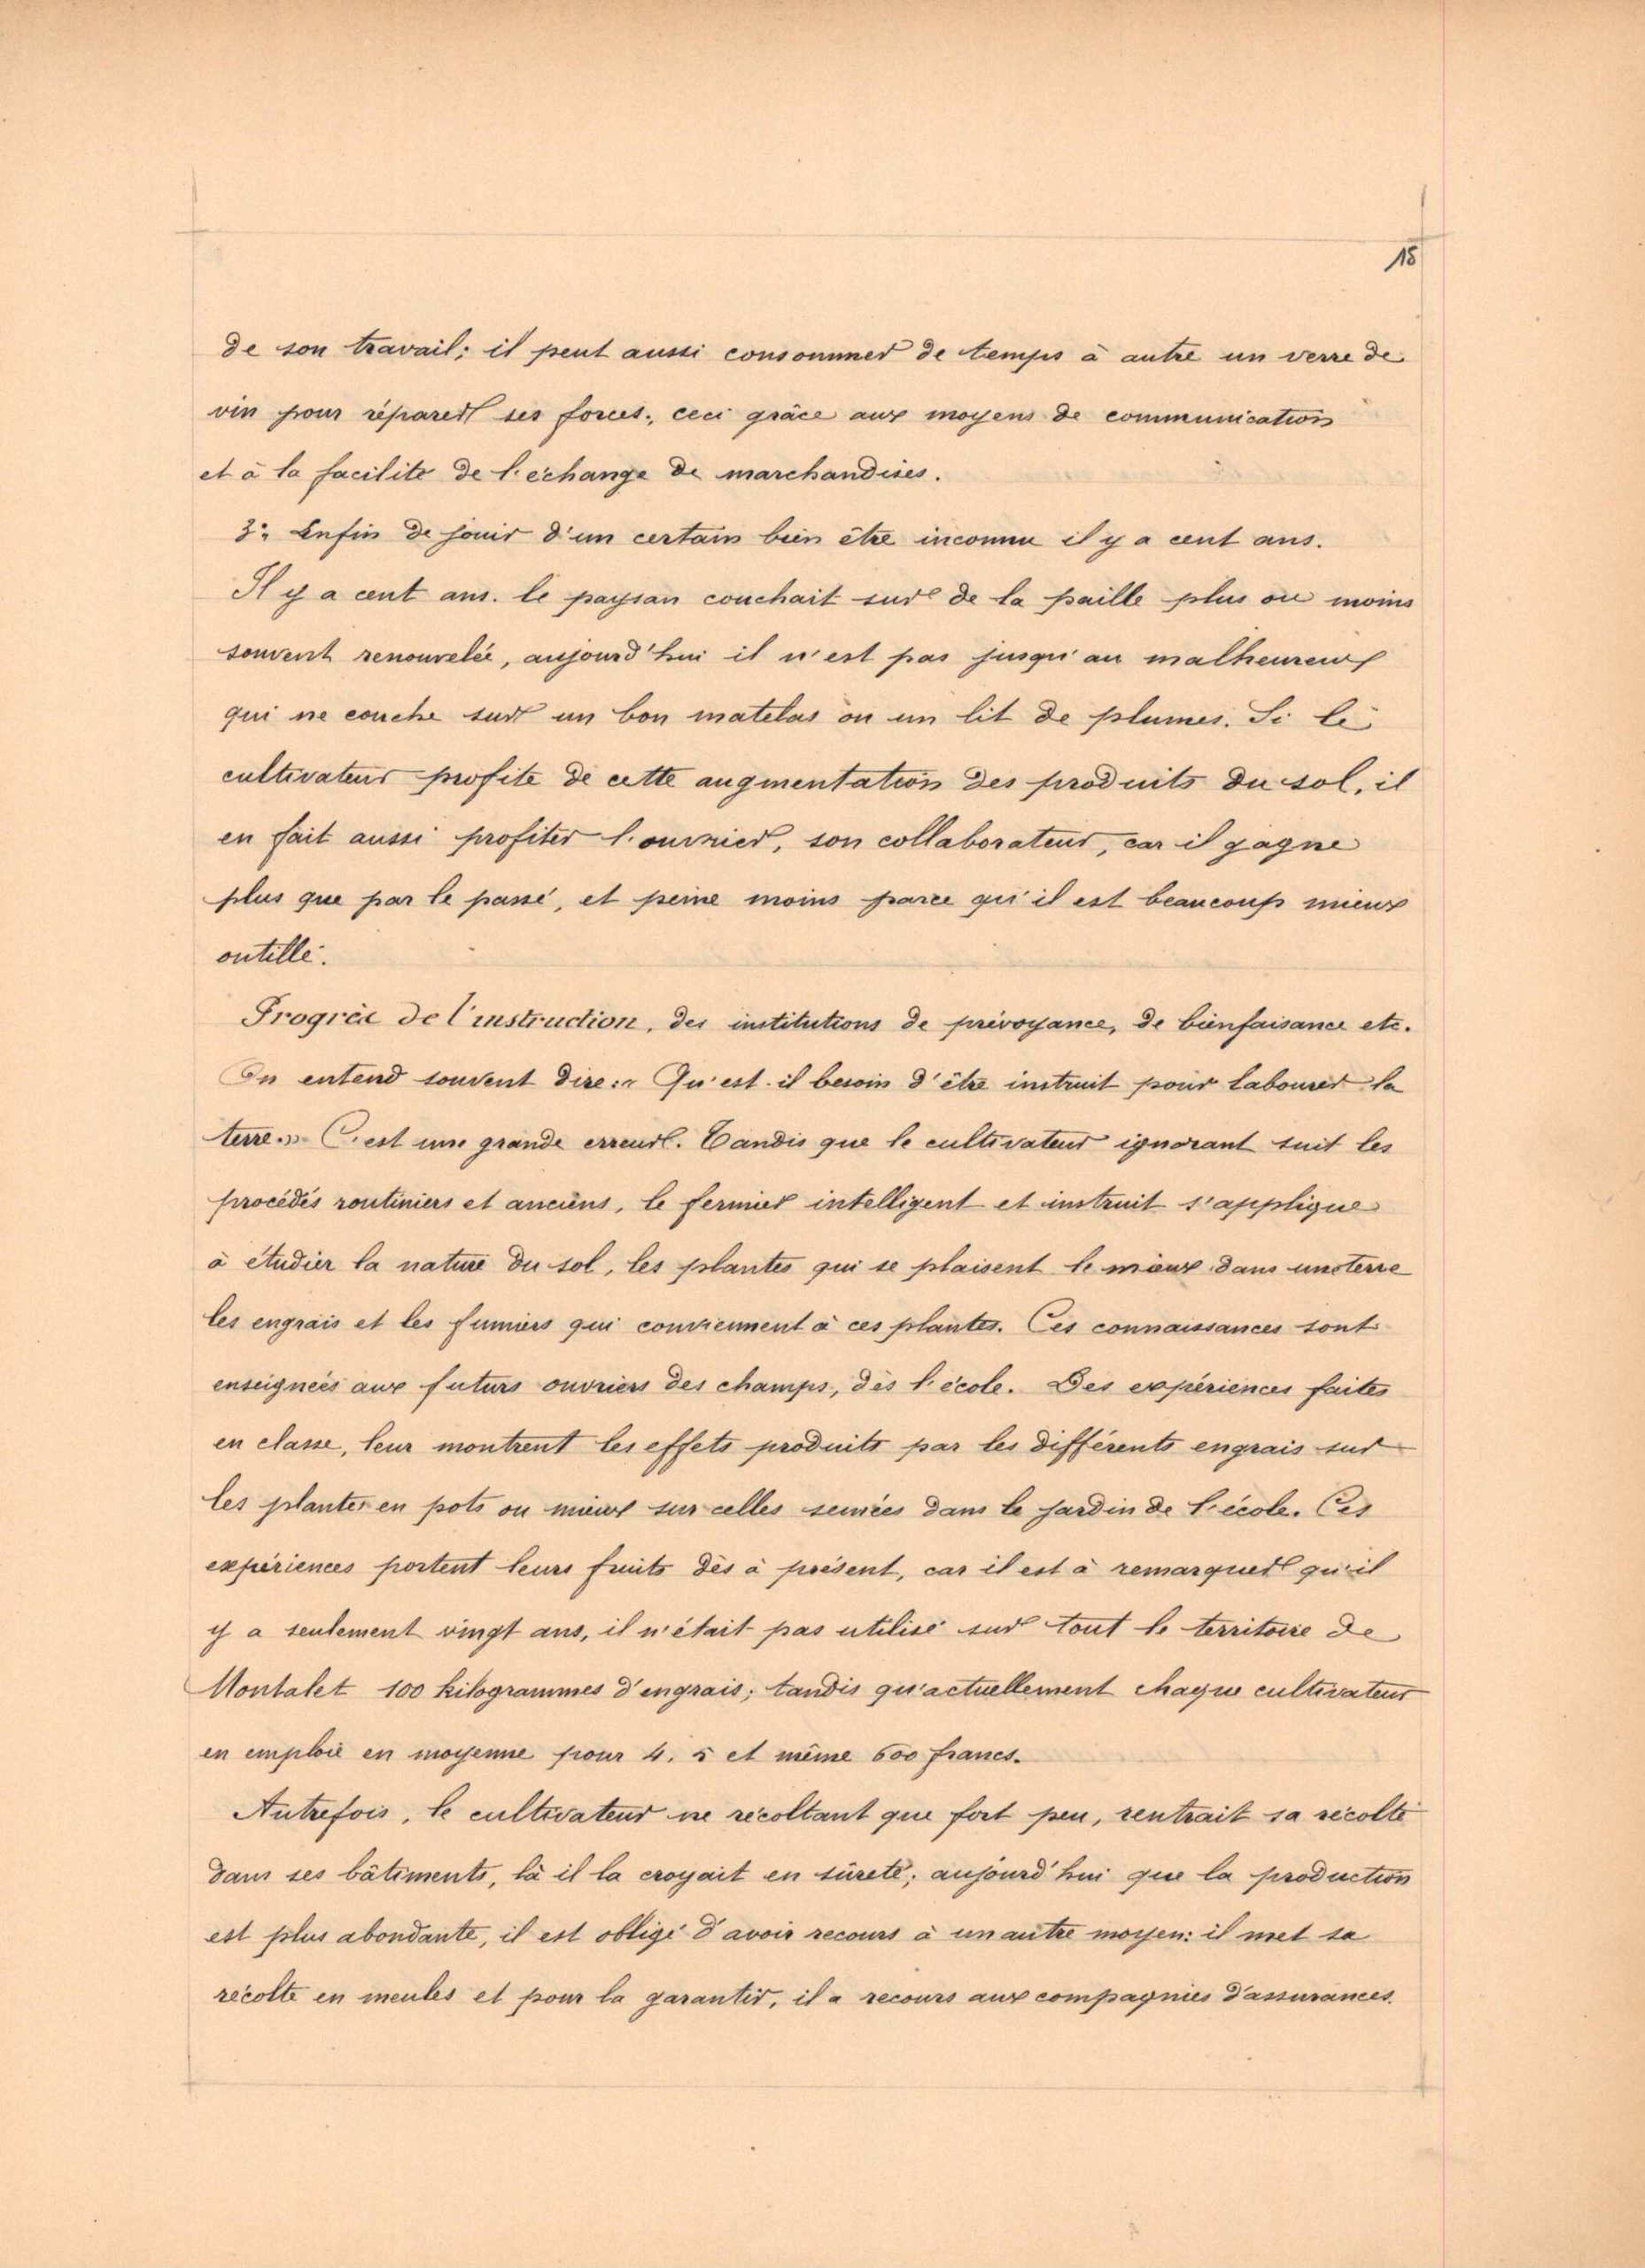 15
de son travail; il peut aussi consommer de temps à autre un verre de
vin pour réparer ses forces, ceci grâce aux moyens de communication
et à la facilité de l'échange de marchandises.
3° Enfin de jouir d'un certain bien être inconnu il y a cent ans.
Il y a cent ans. le paysan couchait sur de la paille plus ou moins
souvent renouvelée, aujourd'hui il n'est pas jusqu'au malheureux
qui ne couche sur un bon matelas ou un lit de plumes. Si le
cultivateur profite de cette augmentation des produits du sol, il
en fait aussi profiter l'ouvrier, son collaborateur, car il gagne
plus que par le passé, et peine moins parce qu'il est beaucoup mieux
outillé.
Progrès de l'instruction, des institutions de prévoyance, de bienfaisance etc.
On entend souvent dire: « Qu'est-il besoin d'être instruit pour labourer la
terre.» C'est une grande erreur. Tandis que le cultivateur ignorant suit les
procédés routiniers et anciens, le fermier intelligent et instruit s'applique
à étudier la nature du sol, les plantes qui se plaisent le mieux dans une terre
les engrais et les fumiers qui conviennent à ces plantes. Ces connaissances sont
enseignées aux futurs ouvriers des champs, dès l'école. Des expériences faites
en classe, leur montrent les effets produits par les différents engrais sur
les plantes en pots ou mieux sur celles semées dans le jardin de l'école. Ces
expériences portent leurs fruits dès à présent, car il est à remarquer qu'il
y a seulement vingt ans, il n'était pas utilisé sur tout le territoire de
Montalet 100 kilogrammes d'engrais; tandis qu'actuellement chaque cultivateur
en emploie en moyenne pour 4, 5 et même 600 francs.
Autrefois, le cultivateur ne récoltant que fort peu, rentrait sa récolte
dans ses bâtiments, là il la croyait en sûreté; aujourd'hui que la production
est plus abondante, il est obligé d'avoir recours à un autre moyen: il met sa
récolte en meules et pour la garantir, il a recours aux compagnies d'assurances.